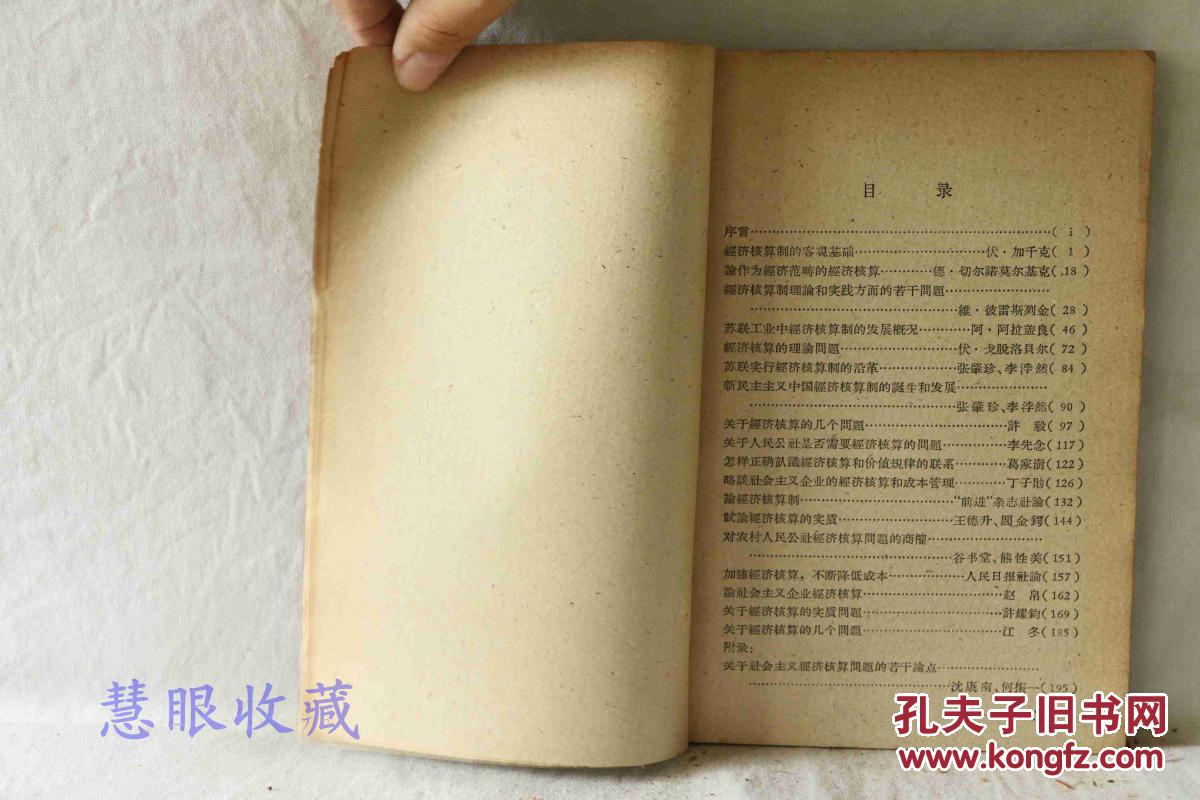 目 录
序言……(i)
經济核算制的客观基础……伏·加千克(1)
論作为經济范畴的經济核算……德·切尔諾莫尔基克(18)
經济核算制理論和实践方面的若干問題……
……維·彼雷斯列金(28)
苏联工业中經济核算制的发展概况……阿·阿拉盖良(46)
經济核算的理論問題……伏·戈脫洛貝尔(72)
苏联实行經济核算制的沿革……张肇珍、李浡然(84)
新民主主义中国經济核算制的誕生和发展……
……张肇珍、李浡然(90)
关于經济核算的几个問題……許 毅(97)
关于人民公社是否需要經济核算的問題……李先念(117)
怎样正确認識經济核算和价值規律的联系……葛家澍(122)
略談社会主义企业的經济核算和成本管理……丁子勛(126)
論經济核算制……“前进”杂志社論(132)
試論經济核算的实质……王德升、閻金鍔(144)
对农村人民公社經济核算問題的商榷……
……谷书堂、熊性美(151)
加強經济核算，不断降低成本……人民日报社論(157)
論社会主义企业經济核算……赵 帛(162)
关于經济核算的实质問題……許耀鈞(169)
关于經济核算的几个問題……江 冬(185)
附录：
关于社会主义經济核算問題的若干論点……
……沈康南、何振一(195)
慧眼收藏
孔夫子旧书网
www.kongfz.com